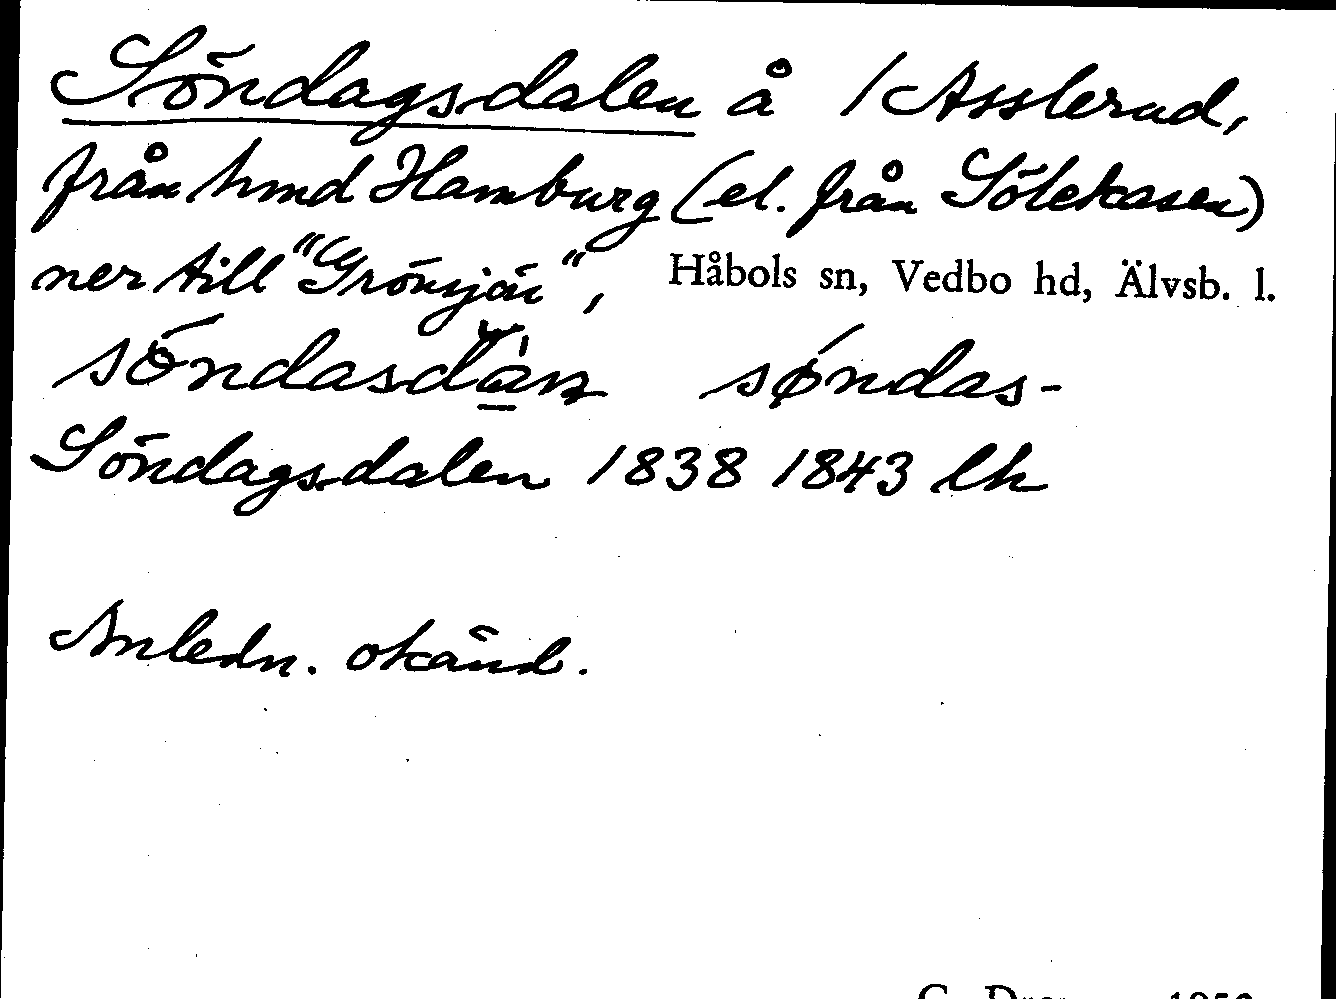 Söndagsdalen å 1 Asslerud,
från hmd Hamburg (el. från Sölekasen)
ner till "Grönsjöi", Håbols sn, Vedbo hd, Älvsb. l.
söndas- søndas-
Söndagsdalen 1838 1843 lh
Anledn. okänd.